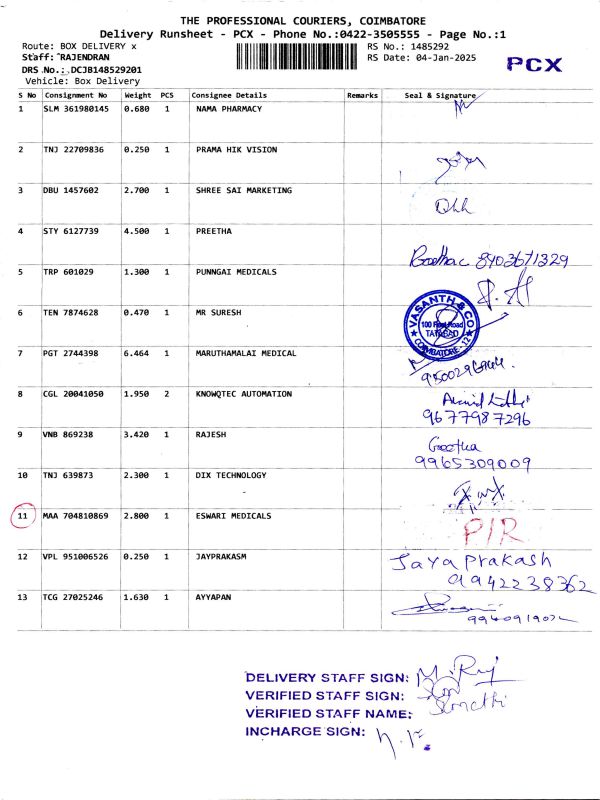 THE PROFESSIONAL COURIERS, COIMBATORE
Delivery Runsheet - PCX - Phone No.:0422-3505555 - Page No.:1
Route: BOX DELIVERY x
RS No.: 1485292
Staff: RAJENDRAN
RS Date: 04-Jan-2025
PCX
DRS No.: DCJB148529201
Vehicle: Box Delivery
S No Consignment No Weight PCS Consignee Details Remarks Seal & Signature
1 SLM 361980145 0.680 1 NAMA PHARMACY
2 TNJ 22709836 0.250 1 PRAMA HIK VISION
3 DBU 1457602 2.700 1 SHREE SAI MARKETING
4 STY 6127739 4.500 1 PREETHA 8903671329
5 TRP 601029 1.300 1 PUNNGAI MEDICALS
6 TEN 7874628 0.470 1 MR SURESH
VASANTH & CO
TATABAD
COIMBATORE - 12
7 PGT 2744398 6.464 1 MARUTHAMALAI MEDICAL
8 CGL 20041050 1.950 2 KNOWQTEC AUTOMATION
9677987296
9 VNB 869238 3.420 1 RAJESH Geetha
9965309009
10 TNJ 639873 2.300 1 DIX TECHNOLOGY
11 MAA 704810869 2.800 1 ESWARI MEDICALS P/R
12 VPL 951006526 0.250 1 JAYPRAKASM Jaya Prakash
9942238362
13 TCG 27025246 1.630 1 AYYAPAN
DELIVERY STAFF SIGN:
VERIFIED STAFF SIGN:
VERIFIED STAFF NAME:
INCHARGE SIGN: